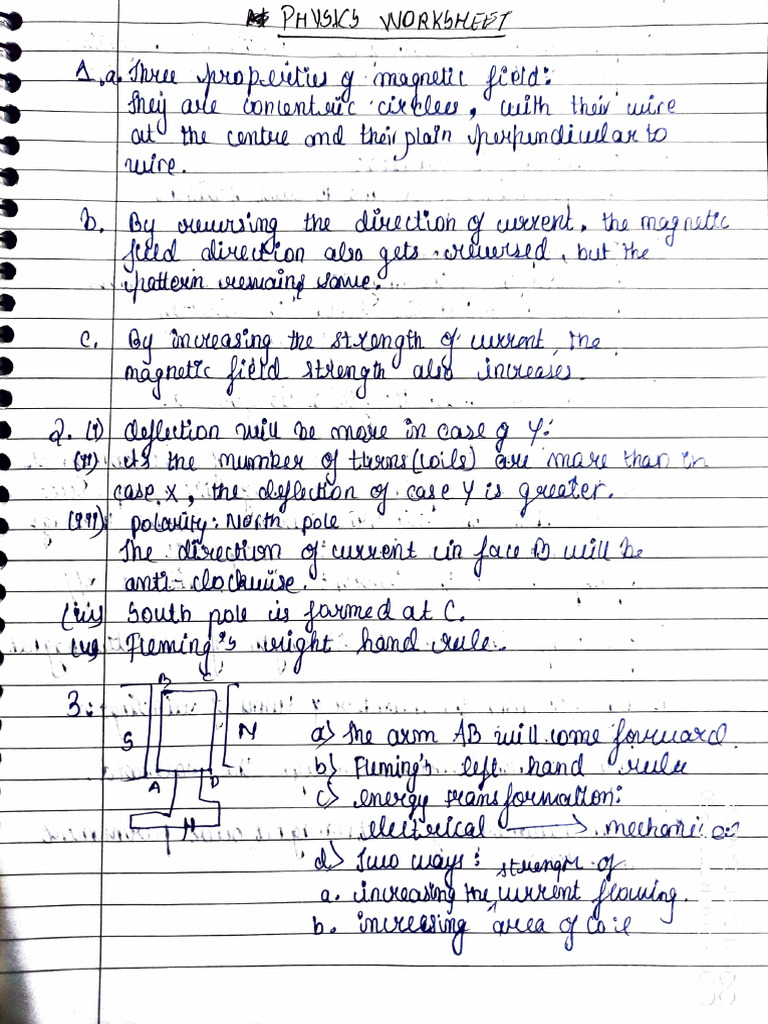 PHYSICS WORKSHEET
1.a. Three properties of magnetic field:
They are concentric circles, with their wire
at the centre and their plain perpendicular to
wire.
b. By reversing the direction of current, the magnetic
field direction also gets reversed, but the
pattern remains same.
c. By increasing the strength of current, the
magnetic field strength also increases.
2. (i) deflection will be more in case of Y:
(ii) As the number of turns (coils) are more than in
case X, the deflection of case Y is greater.
(iii) polarity: North pole
The direction of current in face B will be
anti-clockwise.
South pole is formed at C.
Fleming's right hand rule.
3:
B C
S N
A D
a) The arm AB will come forward.
b) Fleming's left hand rule
c) energy transformation:
electrical → mechanical
d) Two ways: strength of
a. increasing the current flowing.
b. increasing area of coil